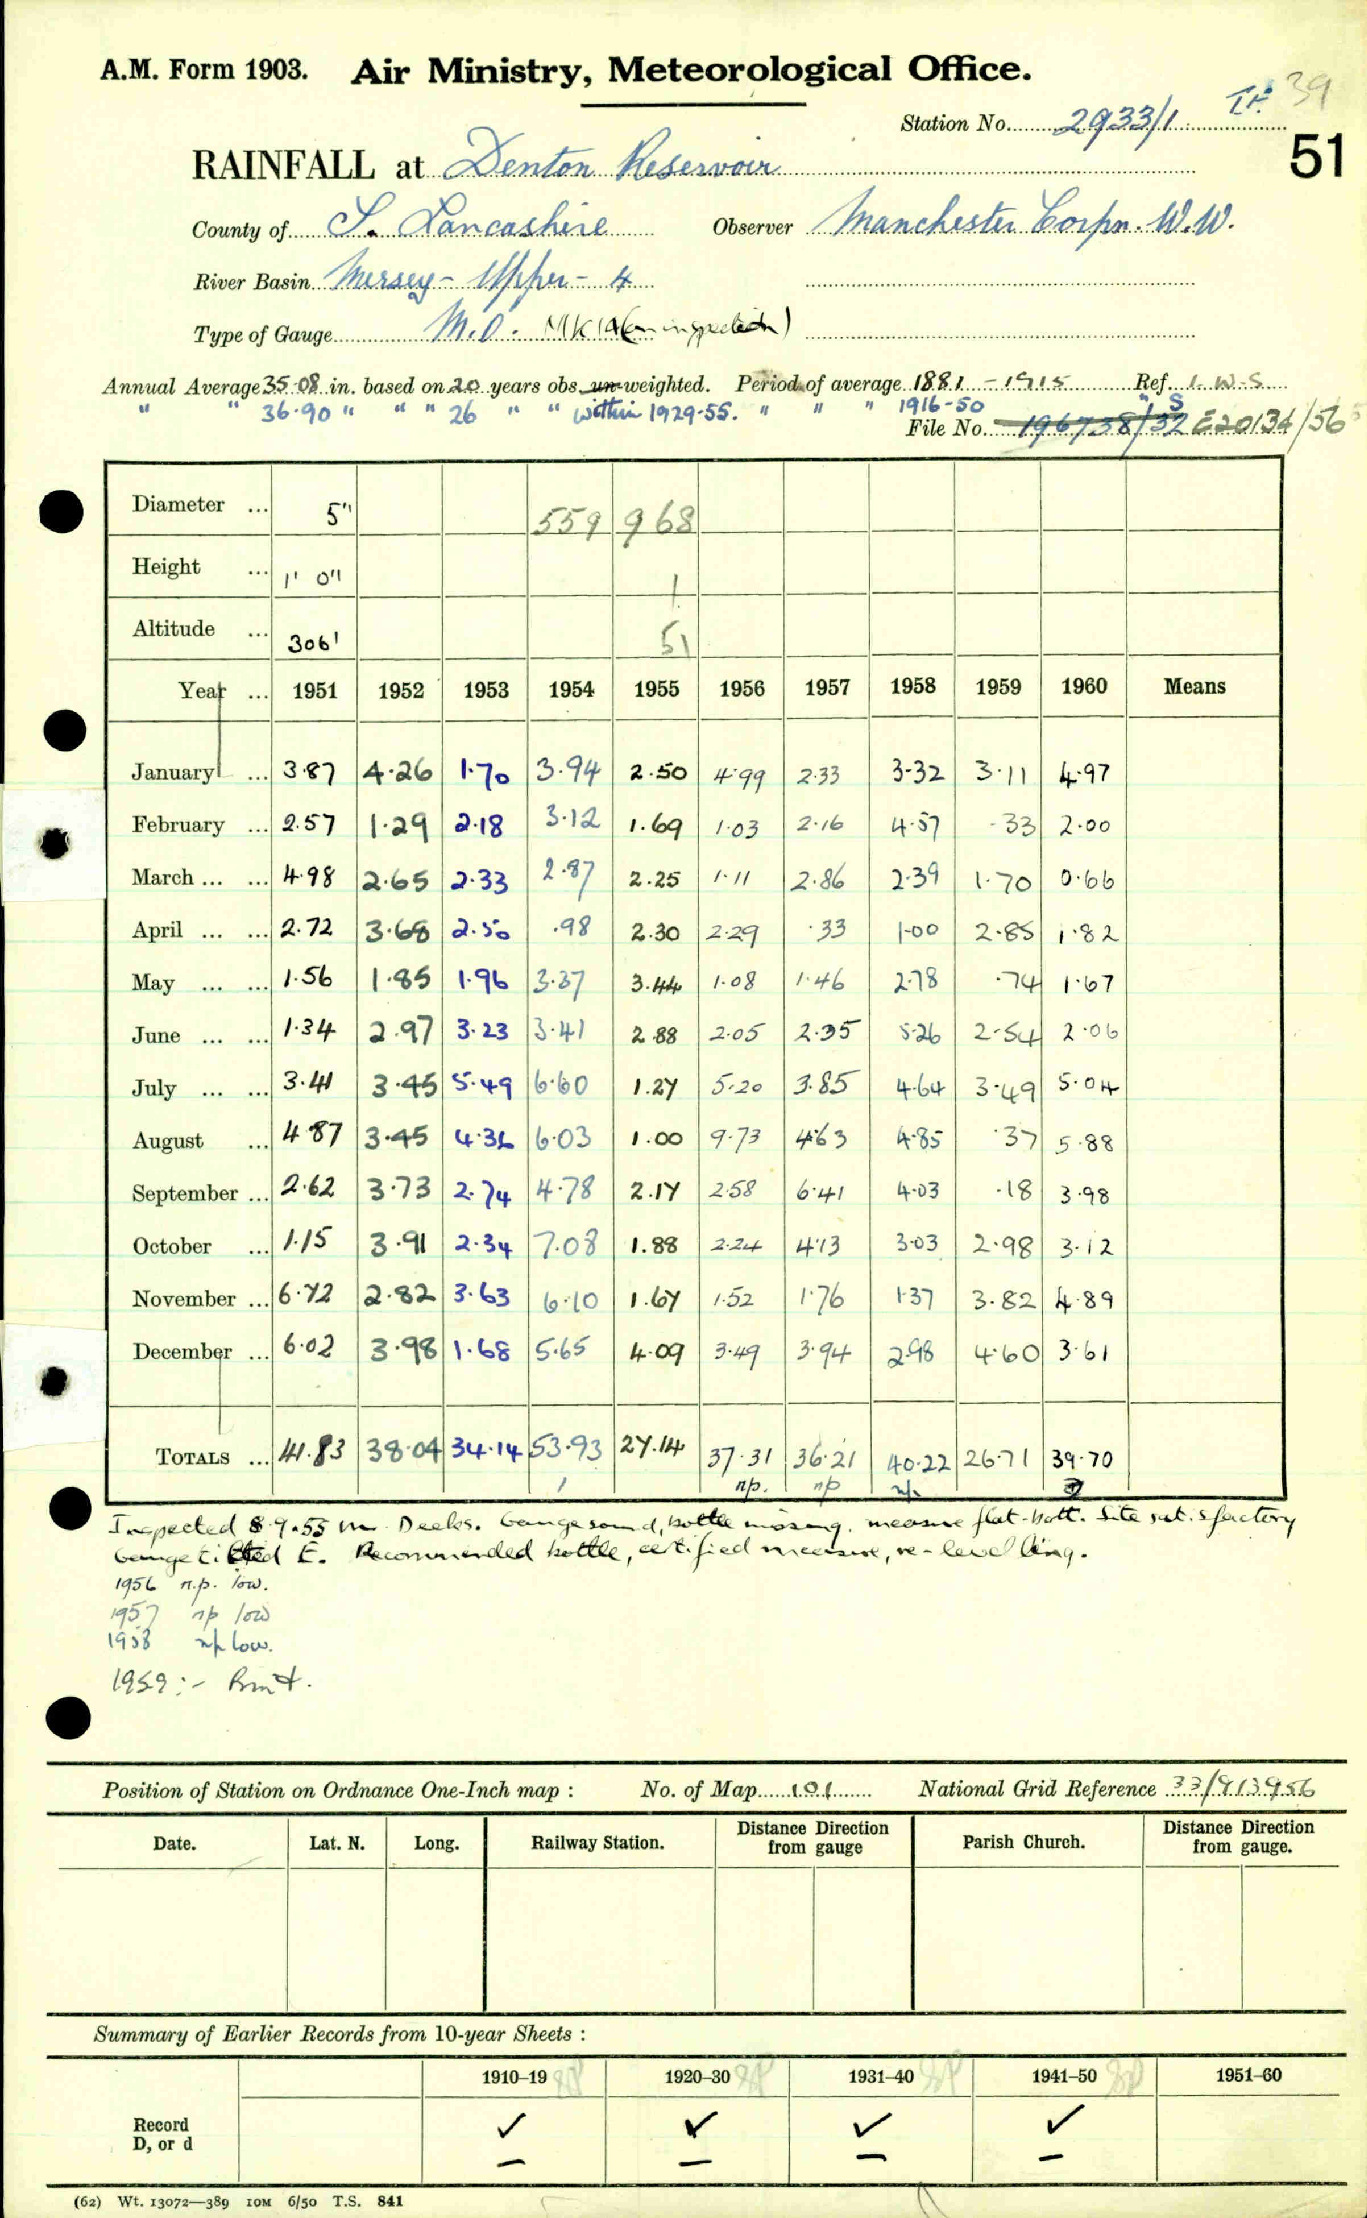 A.M. Form 1903. Air Ministry, Meteorological Office.
39
Station No. 2933/1
51
RAINFALL at Denton Reservoir
County of S. Lancashire Observer Manchester Corpn. W.W.
River Basin Mersey - Upper - 4
Type of Gauge M.O. MK 1A (on inspection)
Annual Average 35.08 in. based on 20 years obs. un-weighted. Period of average 1881 - 1915 Ref. I.W.S.
" " 36.90 " " " 26 " " within 1929-55. " " " 1916-50 " S
File No. 196738/32 E20134/56
Diameter ... 5" 559 968
Height ... 1' 0" 1
Altitude ... 306' 51
Year ... 1951 1952 1953 1954 1955 1956 1957 1958 1959 1960 Means
January ... 3.87 4.26 1.70 3.94 2.50 4.99 2.33 3.32 3.11 4.97
February ... 2.57 1.29 2.18 3.12 1.69 1.03 2.16 4.57 .33 2.00
March ... ... 4.98 2.65 2.33 2.87 2.25 1.11 2.86 2.39 1.70 0.66
April ... ... 2.72 3.68 2.50 .98 2.30 2.29 .33 1.00 2.85 1.82
May ... ... 1.56 1.85 1.96 3.37 3.44 1.08 1.46 2.78 .74 1.67
June ... ... 1.34 2.97 3.23 3.41 2.88 2.05 2.35 5.26 2.54 2.06
July ... ... 3.41 3.45 5.49 6.60 1.27 5.20 3.85 4.64 3.49 5.04
August ... 4.87 3.45 4.36 6.03 1.00 9.73 4.63 4.85 .37 5.88
September ... 2.62 3.73 2.74 4.78 2.17 2.58 6.41 4.03 .18 3.98
October ... 1.15 3.91 2.34 7.08 1.88 2.24 4.13 3.03 2.98 3.12
November ... 6.72 2.82 3.63 6.10 1.67 1.52 1.76 1.37 3.82 4.89
December ... 6.02 3.98 1.68 5.65 4.09 3.49 3.94 2.98 4.60 3.61
TOTALS ... 41.83 38.04 34.14 53.93 27.14 37.31 36.21 40.22 26.71 39.70
np. np np.
Inspected 8.9.55 Mr Deeks. Gauge sound, bottle missing, measure flat-bott. Site satisfactory
Gauge tilted E. Recommended bottle, certified measure, re-levelling.
1956 n.p. low.
1957 np low
1958 np low.
1959 :- Print.
Position of Station on Ordnance One-Inch map : No. of Map 101 National Grid Reference 33/913956
Date. Lat. N. Long. Railway Station. Distance Direction from gauge Parish Church. Distance Direction from gauge.
Summary of Earlier Records from 10-year Sheets :
1910–19 1920–30 1931–40 1941–50 1951–60
Record ✓ ✓ ✓ ✓
D, or d – – – –
(62) Wt. 13072—389 10M 6/50 T.S. 841